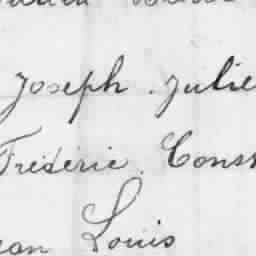 Joseph. Julie
Frédéric. Const
ean Louis